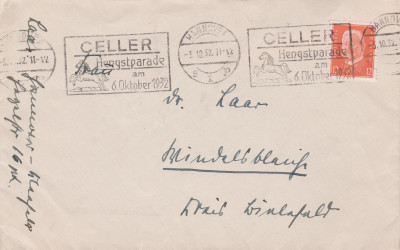 HANNOVER
-3.10.32.11-12
CELLER
Hengstparade
am
6.Oktober 1932
CELLER
Hengstparade
am
6.Oktober 1932
HANNOVER
3.10.32
12
Frau
Dr. Laar
Windelsbleiche
Kreis Bielefeld
Laar Hannover-